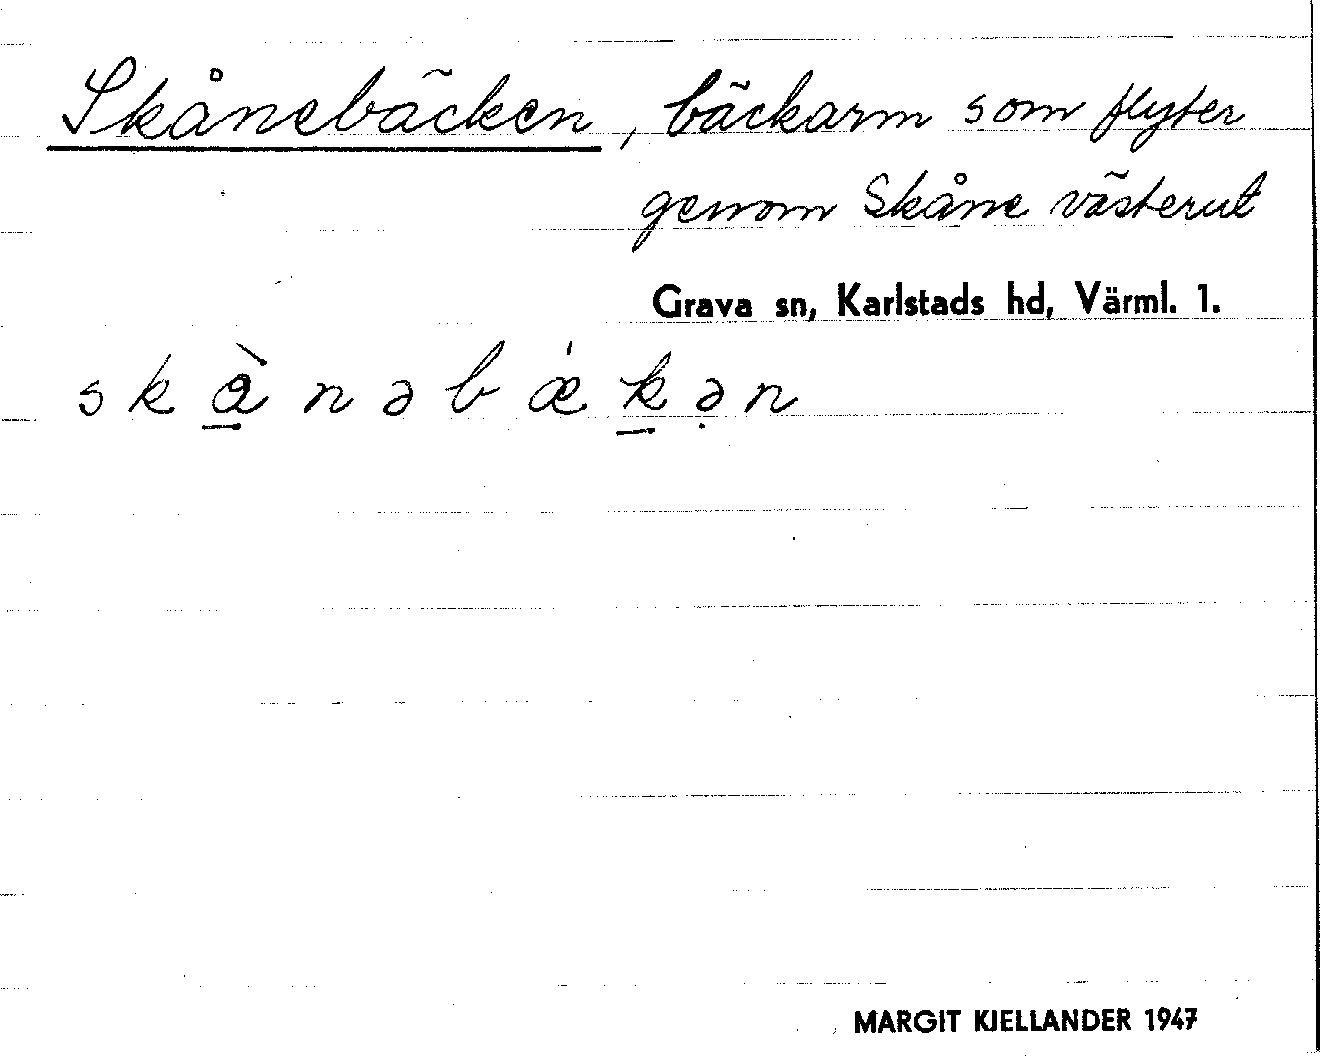 Skånebäcken, bäckarm som flyter
genom Skåne västerut
Grava sn, Karlstads hd, Värml. 1.
skå̀nəbǽkən
MARGIT KJELLANDER 1947